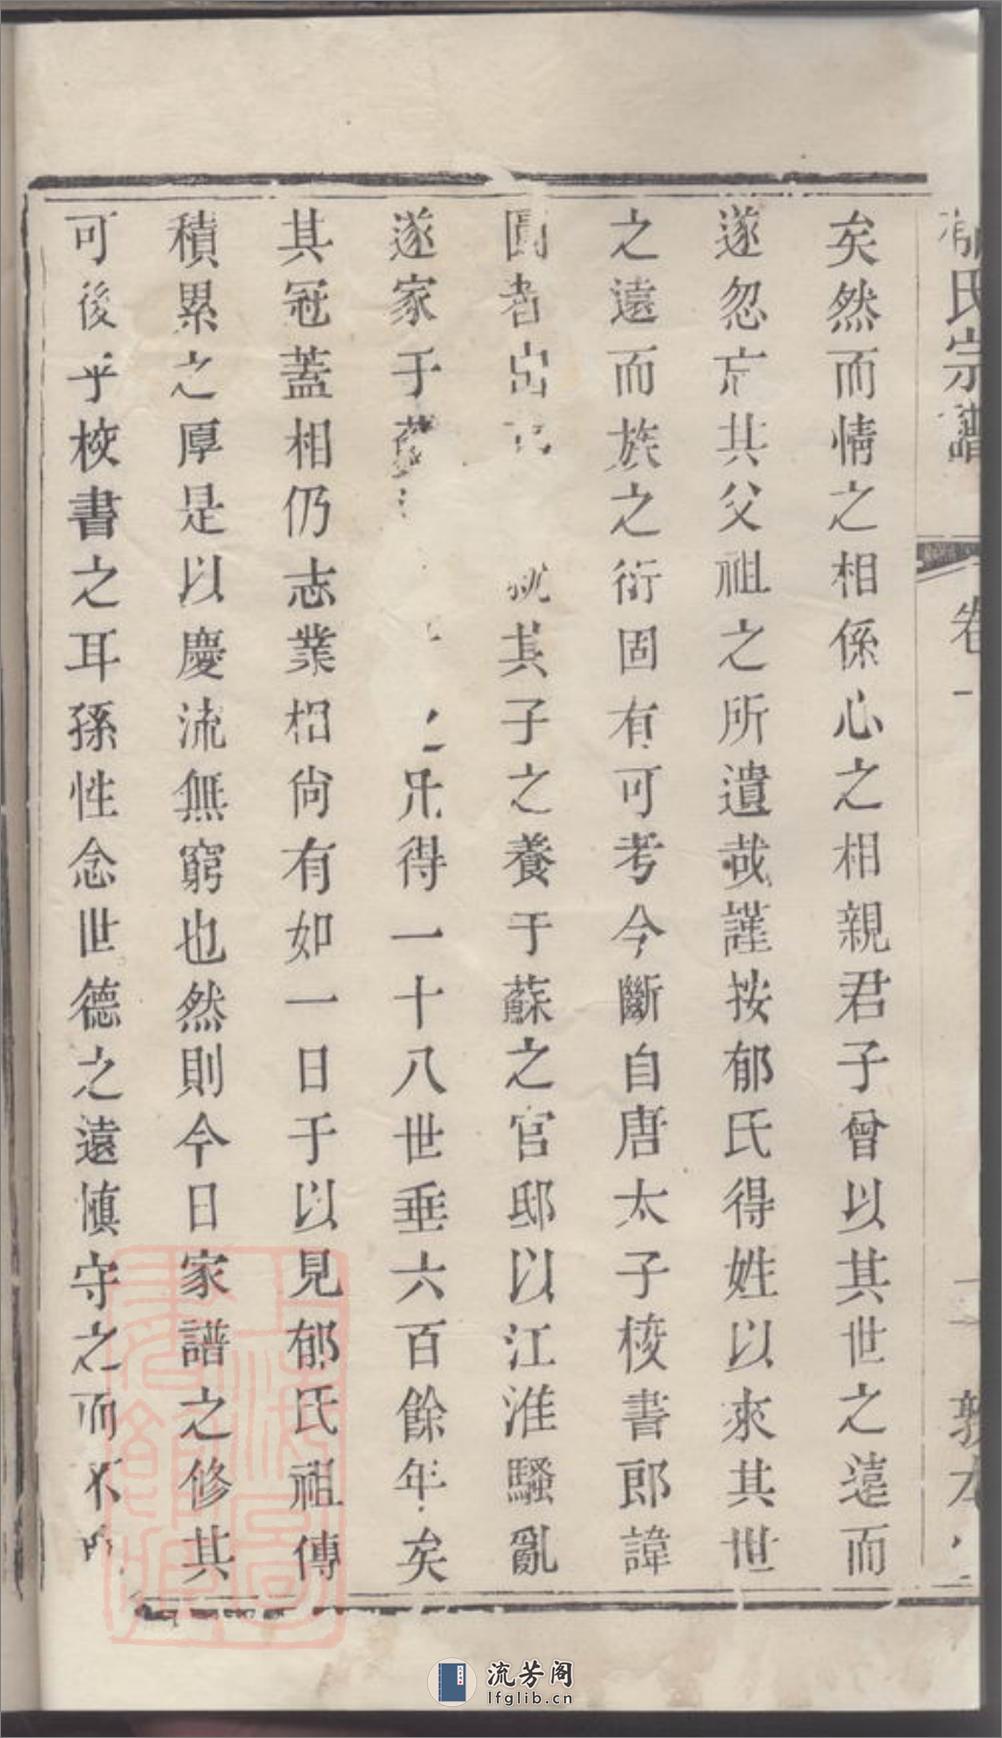 郁氏宗譜
卷一
敦本
矣然而情之相係心之相親君子曾以其世之遠而
遂忽忘其父祖之所遺哉謹按郁氏得姓以來其世
之遠而族之衍固有可考今斷自唐太子校書郎諱
圓者出 就其子之養于蘇之官邸以江淮騷亂
遂家于 得一十八世垂六百餘年矣
其冠蓋相仍志業相尚有如一日于以見郁氏祖傳
積累之厚是以慶流無窮也然則今日家譜之修其
可後乎校書之耳孫性念世德之遠慎守之而不
流芳阁
lfglib.cn